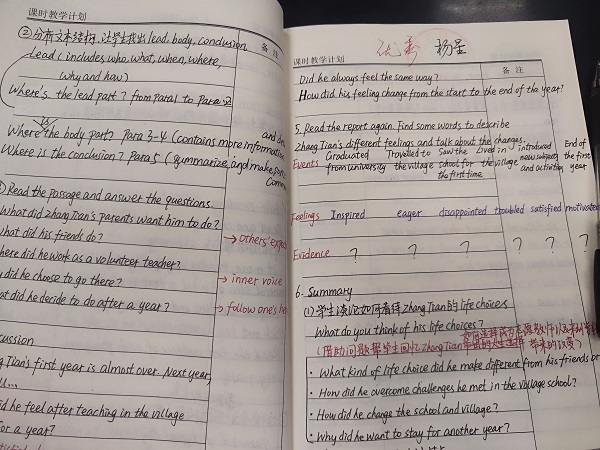 课时教学计划
备 注
②分析文本结构,让学生找出lead, body, conclusion
Lead (includes who, what, when, where,
why and how)
Where's the lead part? from Para1 to Para2
Where is the body part? Para 3-4 (contains more information
Where is the conclusion? Para5 (summarize and make
Read the passage and answer the questions.
What did Zhang Tian's parents want him to do?
hat did his friends do?
→ others'
here did he work as a volunteer teacher?
y did he choose to go there?
→ inner voice
at did he decide to do after a year?
→ follow one's
cussion
g Tian's first year is almost over. Next year,
ll...
id he feel after teaching in the village
for a year?
课时教学计划
优秀
备 注
Did he always feel the same way?
How did his feeling change from the start to the end of the year?
5. Read the report again. Find some words to describe
Zhang Tian's different feelings and talk about the changes.
Events Graduated from university Travelled to the village Saw the school for the first time Lived in the village introduced new subjects and activities End of the first year
Feelings Inspired eager disappointed troubled satisfied motivated
Evidence ? ? ? ? ? ?
6. Summary
(1)学生谈论如何看待Zhang Tian的life choices
What do you think of his life choices?
(借助问题帮学生回忆Zhang Tian
· What kind of life choice did he make different from his friends or
· How did he overcome challenges he met in the village school?
· How did he change the school and village?
· Why did he want to stay for another year?